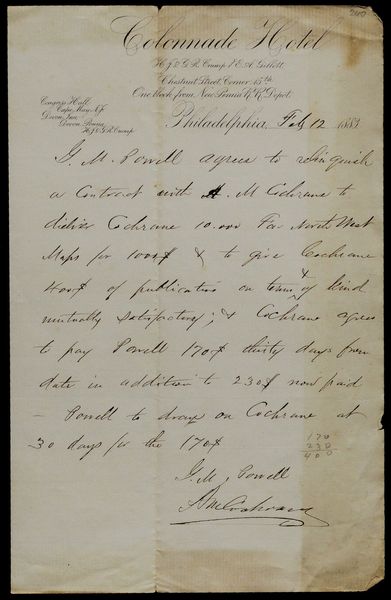 200
Colonnade Hotel
H. J. & G. R. Crump & E. A. Gillett.
Chestnut Street, Corner 15th
One Block from New Penn'a R.R. Depot.
Congress Hall,
Cape May, N.J.
Devon Inn
Devon, Penna.
H. J. & G. R. Crump
Philadelphia, Feb 12 1883
G. M. Powell agrees to relinquish
a Contract with A. M Cochrane to
deliver Cochrane 10.000 Far North West
Maps for 1000$ & to give Cochrane
400$ of publication on terms & kind
mutually satisfactory; & Cochrane agrees
to pay Powell 170$ thirty days from
date in addition to 230$ now paid
– Powell to draw on Cochrane at
30 days for the 170$
170
230
400
G. M. Powell
A M Cochrane